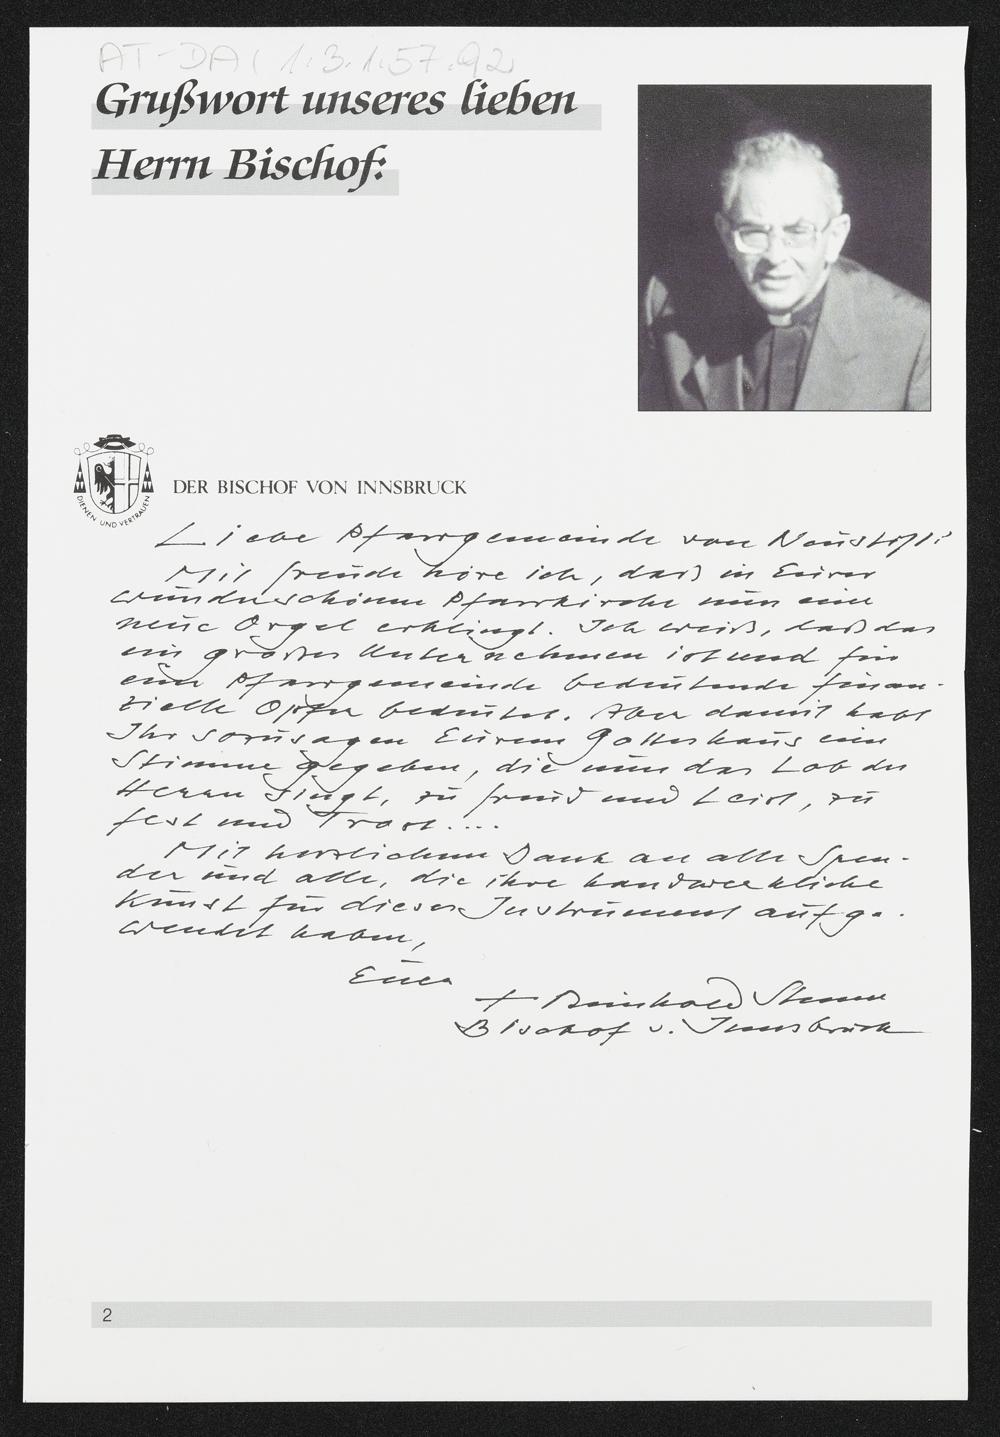 AT-DAI 1.3.1.57.92
Grußwort unseres lieben
Herrn Bischof:
DIENEN UND VERTRAUEN
DER BISCHOF VON INNSBRUCK
Liebe Pfarrgemeinde von Neustift!
Mit Freude höre ich, daß in Eurer
wunderschönen Pfarrkirche nun eine
neue Orgel erklingt. Ich weiß, daß das
ein großes Unternehmen ist und für
eine Pfarrgemeinde bedeutende finan-
zielle Opfer bedeutet. Aber damit habt
Ihr sozusagen Eurem Gotteshaus eine
Stimme gegeben, die nun das Lob des
Herrn singt, zu Freud und Leid, zu
Fest und Trost....
Mit herzlichem Dank an alle Spen-
der und alle, die ihre handwerkliche
Kunst für dieses Instrument aufge-
wendet haben,
Euer
+ Reinhold Stecher
Bischof v. Innsbruck
2